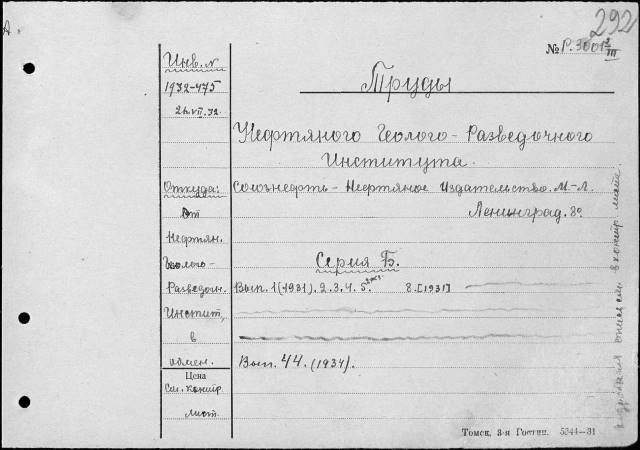 292
№ Р. 3001 3/III
Инв. №
1932-475
26.VII.32.
Труды
Нефтяного Геолого-Разведочного
Института.
Откуда:
от
Нефтян.
Геолого-
Разведочн.
Инстит,
в
обмен.
Цена
См. контр.
лист.
Союзнефть - Нефтяное Издательство. М-Л.
Ленинград. 8º
Серия Б.
Вып. 1 (1931). 2. 3. 4. 5. 8. [1931]
Вып. 44. (1934).
Томск, 3-я Гостип. 5344—31